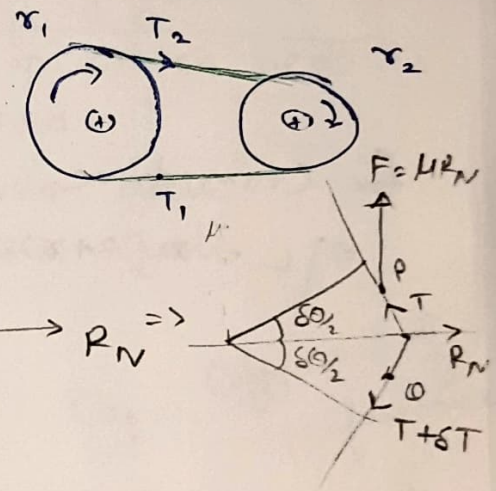 r₁ T₂ r₂
(+) (+)
T₁
μ
F = μR_N
P
T
→ R_N => δθ/2 R_N
δθ/2
Q
T+δT